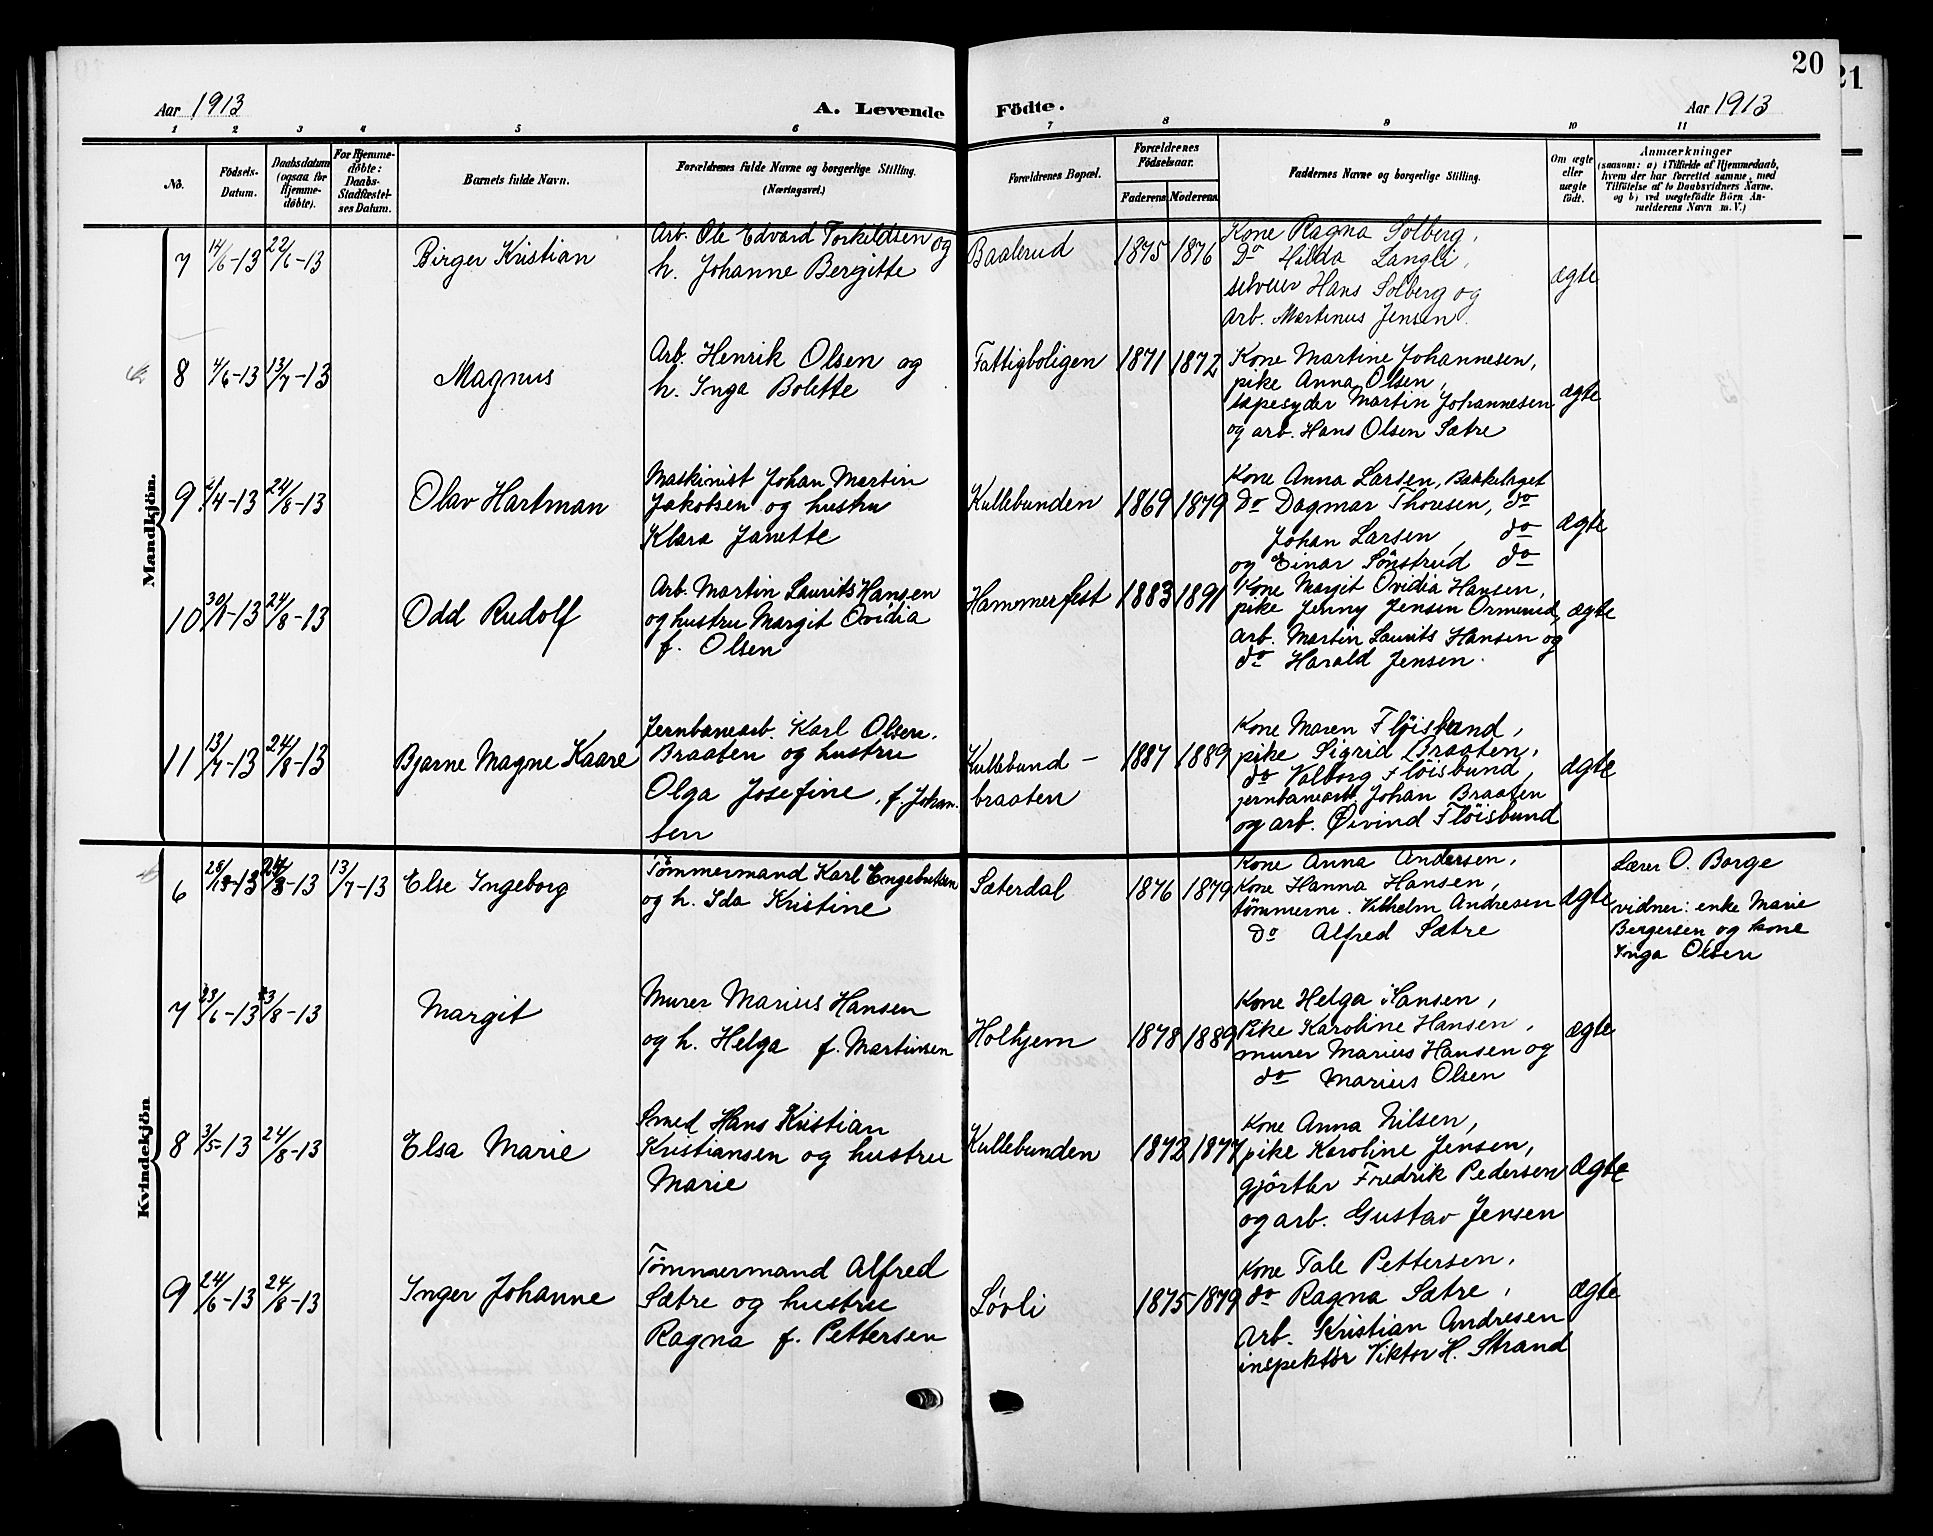 20
21
Aar 1913
A. Levende Födte.
Aar 1913
1 2 3 4 5 6 7 8 9 10 11
No.
Födsels-Datum.
Daabsdatum (ogsaa for Hjemme-døbte).
For Hjemme-døbte: Daabs-Stadfæstel-ses Datum.
Barnets fulde Navn.
Forældrenes fulde Navne og borgerlige Stilling.
(Næringsvei.)
Forældrenes Bopæl.
Forældrenes Fødselsaar.
Faderens Moderens
Faddernes Navne og borgerlige Stilling.
Om ægte eller uægte født.
Anmærkninger
(saasom: a) i Tilfælde af Hjemmedaab,
hvem der har forrettet samme, med
Tilføielse af to Daabsvidners Navne.
og b) ved uægtefødte Börn An-
melderens Navn m. V.)
Mandkjön.
7 14/6-13 22/6-13 Birger Kristian
Arb. Ole Edvard Torkildsen og
h. Johanne Bergitte
Baalerud 1875 1876
Kone Ragna Solberg,
Do Hilda Langli,
selveier Hans Solberg og
Arb. Martinus Jensen.
ægte
8 4/6-13 13/7-13 Magnus
Arb. Henrik Olsen og
h. Inga Bolette
Fattigboligen 1871 1872
Kone Martine Johannesen,
pike Anna Olsen,
sæpesyder Martin Johannesen
og arb. Hans Olsen Sætre
ægte
9 /4-13 24/8-13 Olav Hartman
Maskinist Johan Martin
Jakobsen og hustru
Klara Janette
Kullebunden 1869 1879
Kone Anna Larsen, Bakkelaget
Do Dagmar Thoresen, do
Johan Larsen, do
og Einar Sönstrud do
ægte
10 30/ -13 24/8-13 Odd Rudolf
Arb. Martin Laurits Hansen
og hustru Margit Ovidia
f. Olsen
Hammerfest 1883 1891
Kone Margit Ovidia Hansen,
pike Jenny Jensen Ormerud,
arb. Martin Laurits Hansen og
do Harald Jensen.
ægte
11 13/7-13 24/8-13 Bjarne Magne Kaare
Jernbanearb. Karl Olsen
Braaten og hustru
Olga Josefine, f. Johan-
sen
Kullebund-
braaten
1887 1889
Kone Maren Fløisbund,
pike Sigrid Braaten,
do Valborg Fløisbund,
jernbanearb. Johan Braaten
og arb. Øivind Fløisbund
ægte
Kvindekjön
6 13/7-13 Else Ingeborg
Tømmermand Karl Engebretsen
og h. Ida Kristine
Sæterdal 1876 1879
Kone Anna Andersen,
Kone Hanna Hansen,
tømmerm. Vilhelm Andresen
do Alfred Sætre
ægte
Lærer O. Borge
vidner: enke Marie
Bergersen og kone
Inga Olsen
7 23/6-13 /8-13 Margit
Murer Marius Hansen
og h. Helga f. Martinsen
Holtjern 1878 1889
Kone Helga Hansen,
Pike Karoline Hansen,
murer Marius Hansen og
do Marius Olsen
ægte
8 3/5-13 24/8-13 Elsa Marie
Smed Hans Kristian
Kristiansen og hustru
Marie
Kullebunden 1872 1877
Kone Anna Nilsen,
pike Karoline Jensen,
gjörtler Fredrik Pedersen
og arb. Gustav Jensen
ægte
9 24/6-13 24/8-13 Inger Johanne
Tømmermand Alfred
Sætre og hustru
Ragna f. Pettersen
Løvli 1875 1879
Kone Tale Pettersen,
do Ragna Sætre,
Arb. Kristian Andresen
inspektør Viktor H. Strand
ægte